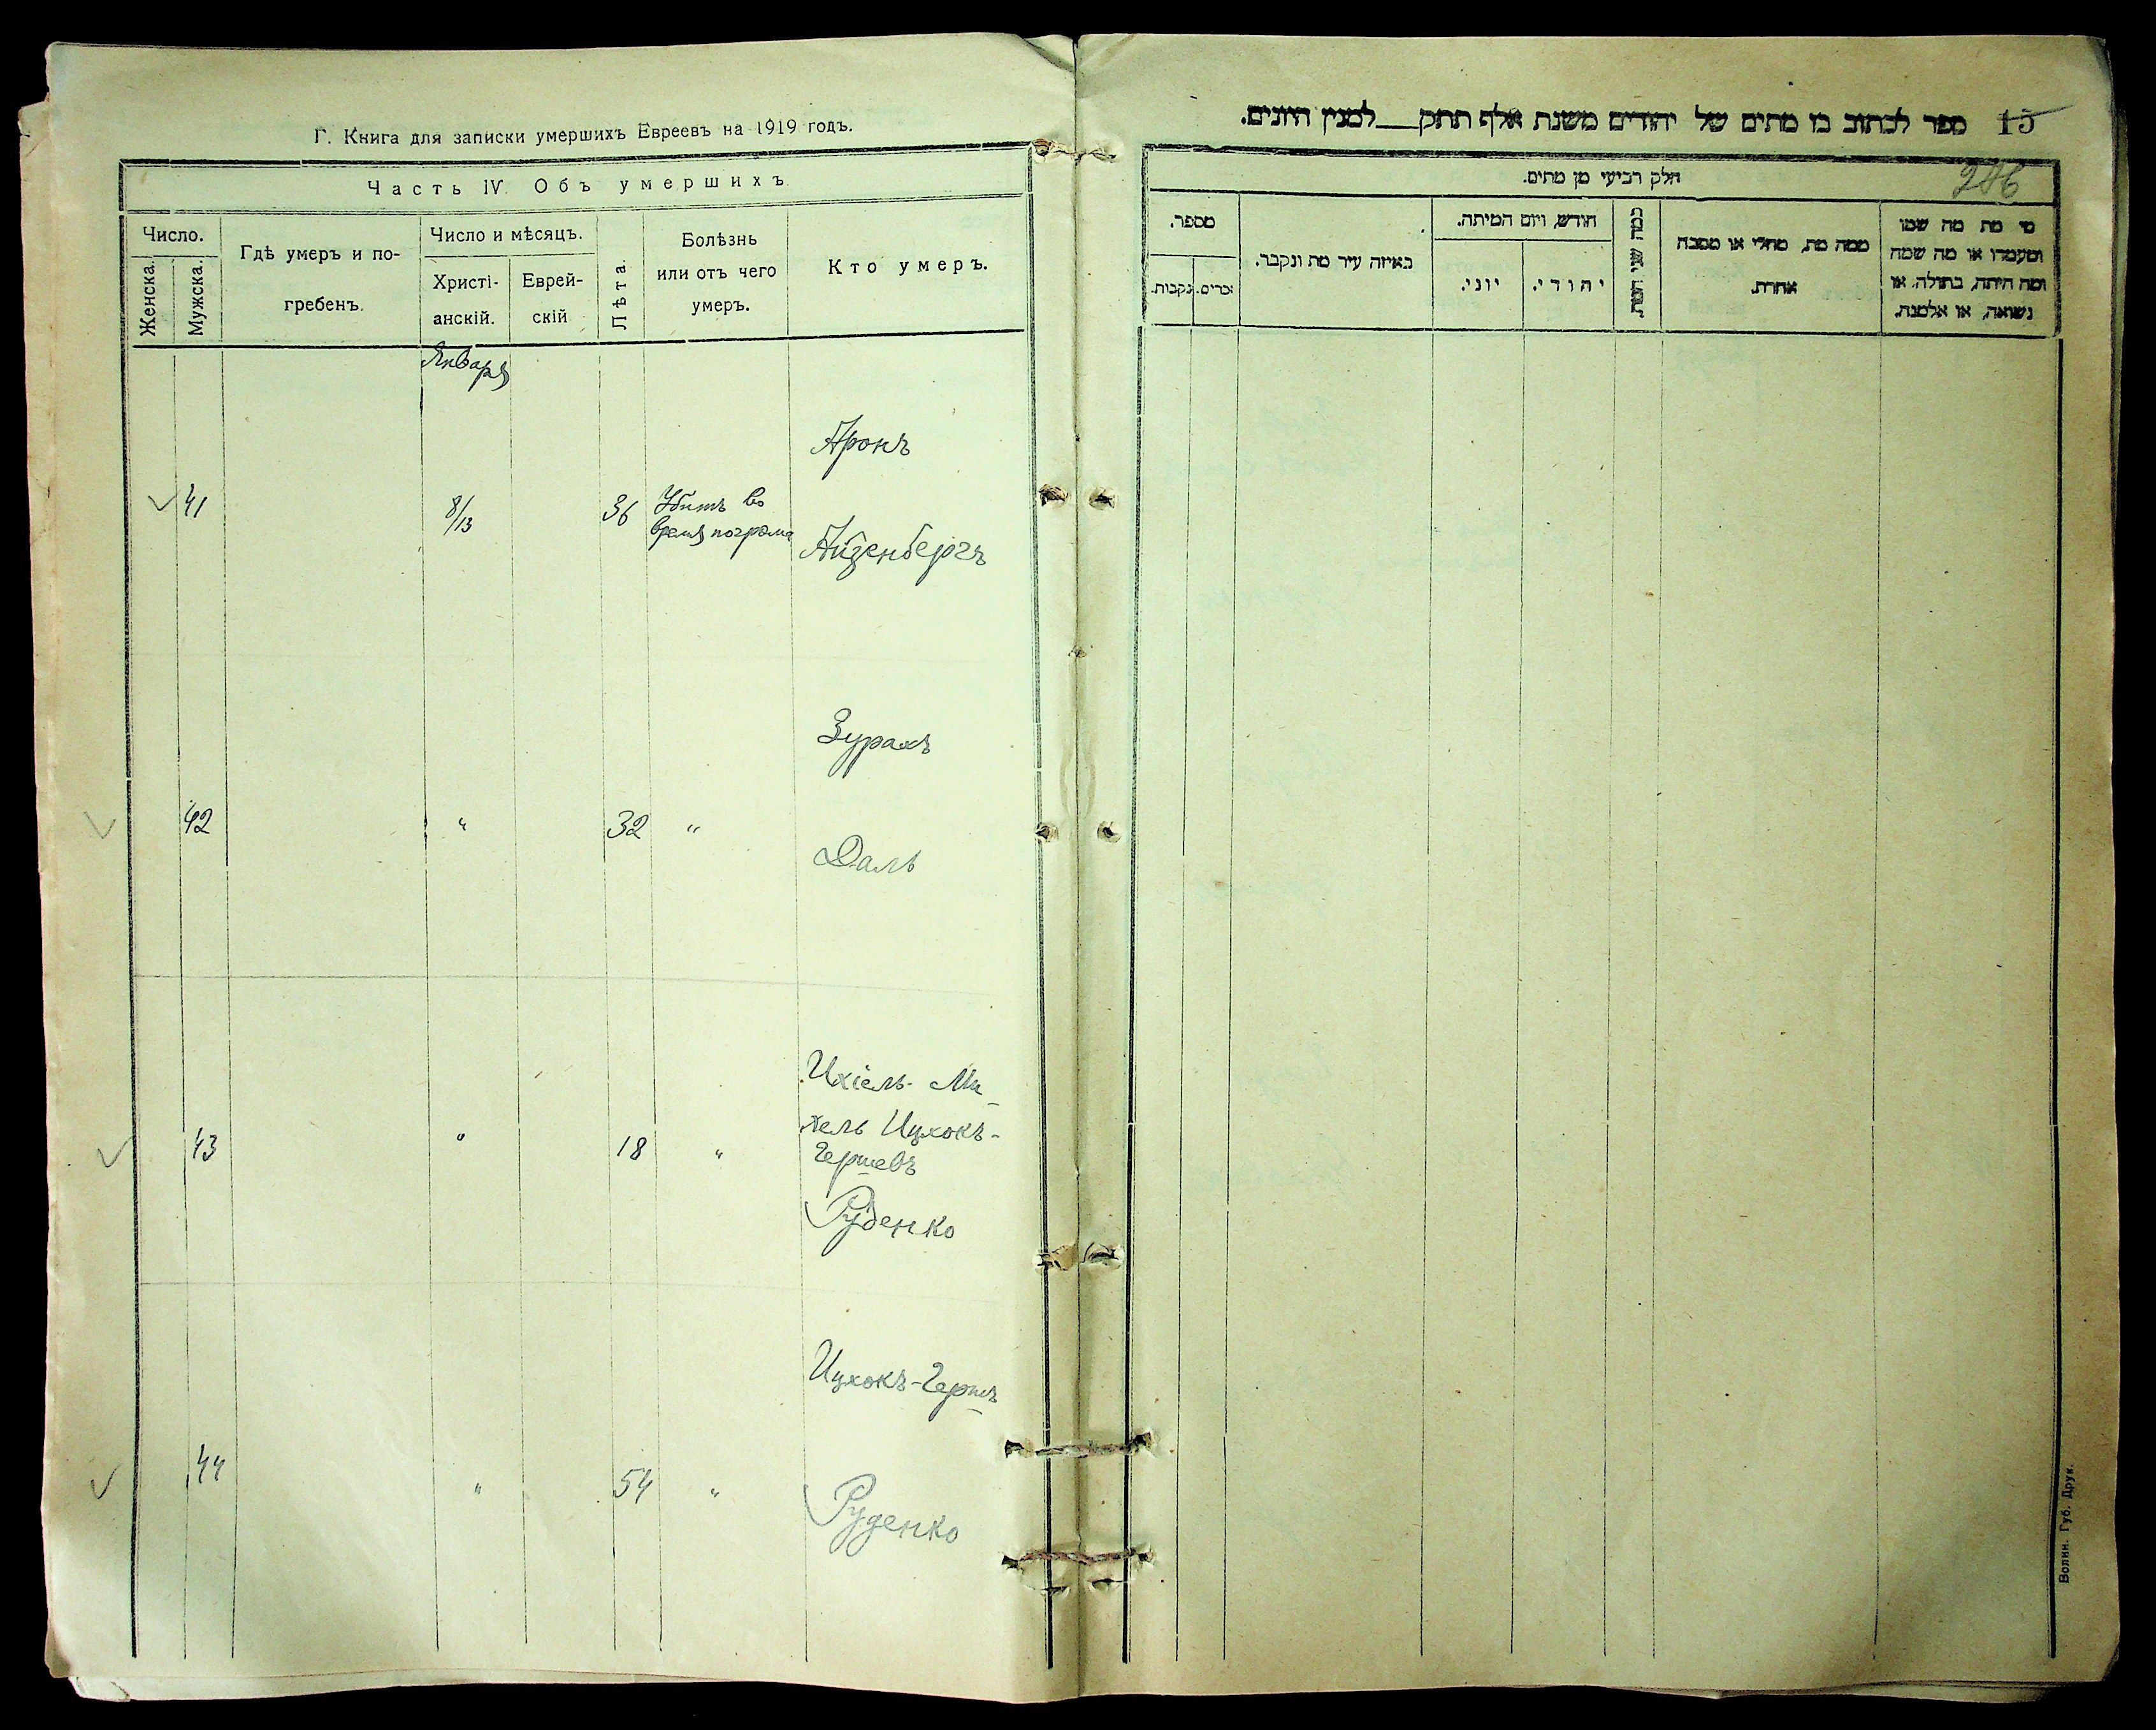 Г. Книга для записки умершихъ Евреевъ на 1919 годъ.
Часть IV. Объ умершихъ
Число.
Женска.
Мужска.
Гдѣ умеръ и по-
гребенъ.
Число и мѣсяцъ.
Христі-
анскій.
Еврей-
скій
Лѣта.
Болѣзнь
или отъ чего
умеръ.
Кто умеръ.
Января
41
8/13
36
Убитъ во
время погрома
Аронъ
Айзенбергъ
42
"
32
"
Зурахъ
Даль
43
"
18
"
Ихіель-Ми_
хель Ицхокъ-
Гершевъ
Руденко
44
"
54
"
Ицхокъ-Гершъ
Руденко
15
ספר לכתוב בו מתים של יהודים משנת אלף תתק___למנין היונים.
חלק רביעי מן מתים.
מספר.
נקבות.
זכרים.
באיזה עיר מת ונקבר.
חודש, ויום המיתה.
יוני.
יהודי.
כמה שני המת.
ממה מת, מחלי או מסבה
אחרת.
מי מת מה שמו
ומעמדו או מה שמה
ומה היתה, בתולה, או
נשואה, או אלמנה.
Волин. Губ. Друк.